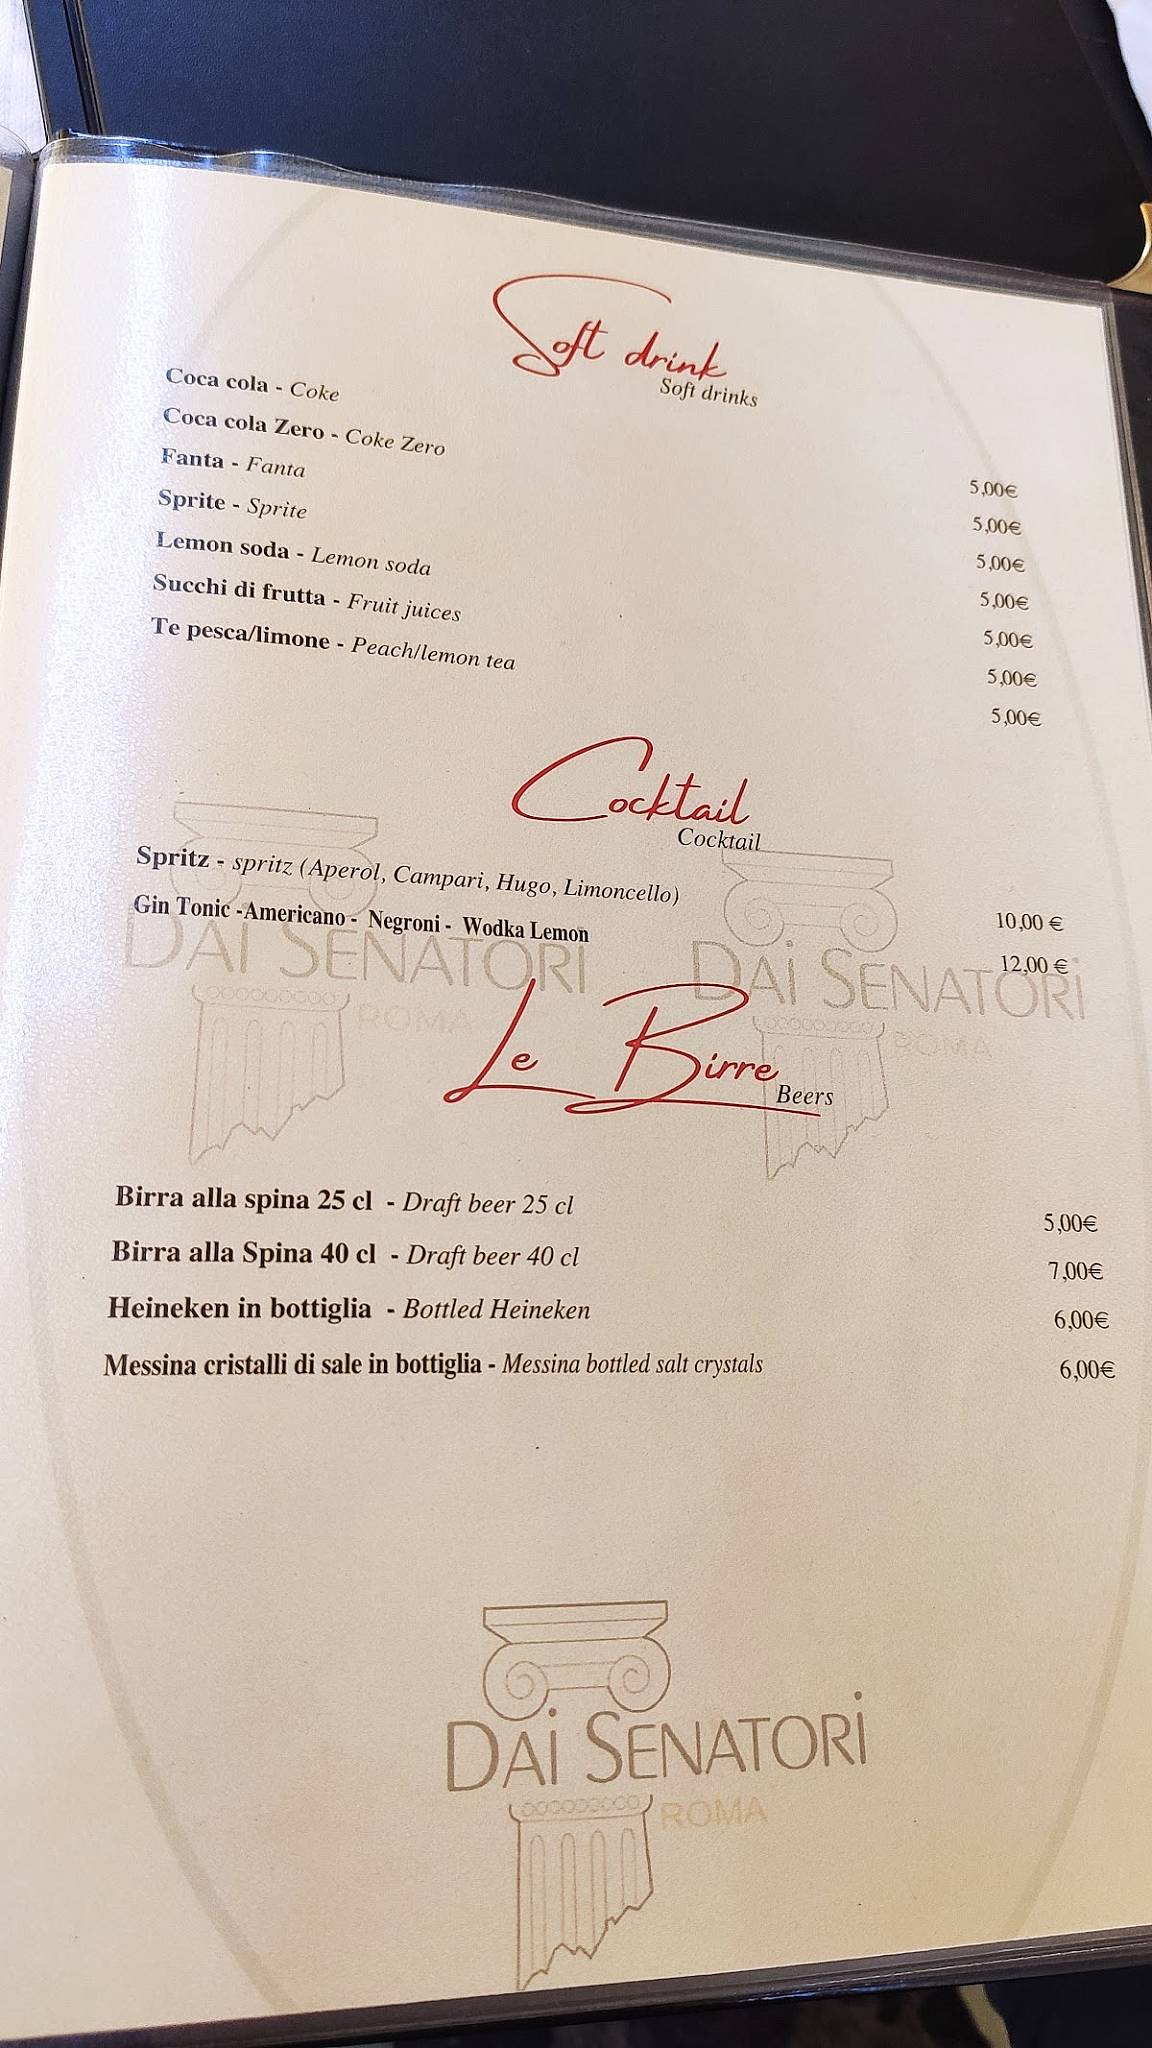 Soft drink
Soft drinks
Coca cola - Coke 5,00€
Coca cola Zero - Coke Zero 5,00€
Fanta - Fanta 5,00€
Sprite - Sprite 5,00€
Lemon soda - Lemon soda 5,00€
Succhi di frutta - Fruit juices 5,00€
Te pesca/limone - Peach/lemon tea 5,00€
Cocktail
Cocktail
Spritz - spritz (Aperol, Campari, Hugo, Limoncello) 10,00 €
Gin Tonic -Americano - Negroni - Wodka Lemon 12,00 €
DAi SENATORi DAi SENATORi
ROMA ROMA
Le Birre
Beers
Birra alla spina 25 cl - Draft beer 25 cl 5,00€
Birra alla Spina 40 cl - Draft beer 40 cl 7,00€
Heineken in bottiglia - Bottled Heineken 6,00€
Messina cristalli di sale in bottiglia - Messina bottled salt crystals 6,00€
DAi SENATORi
ROMA